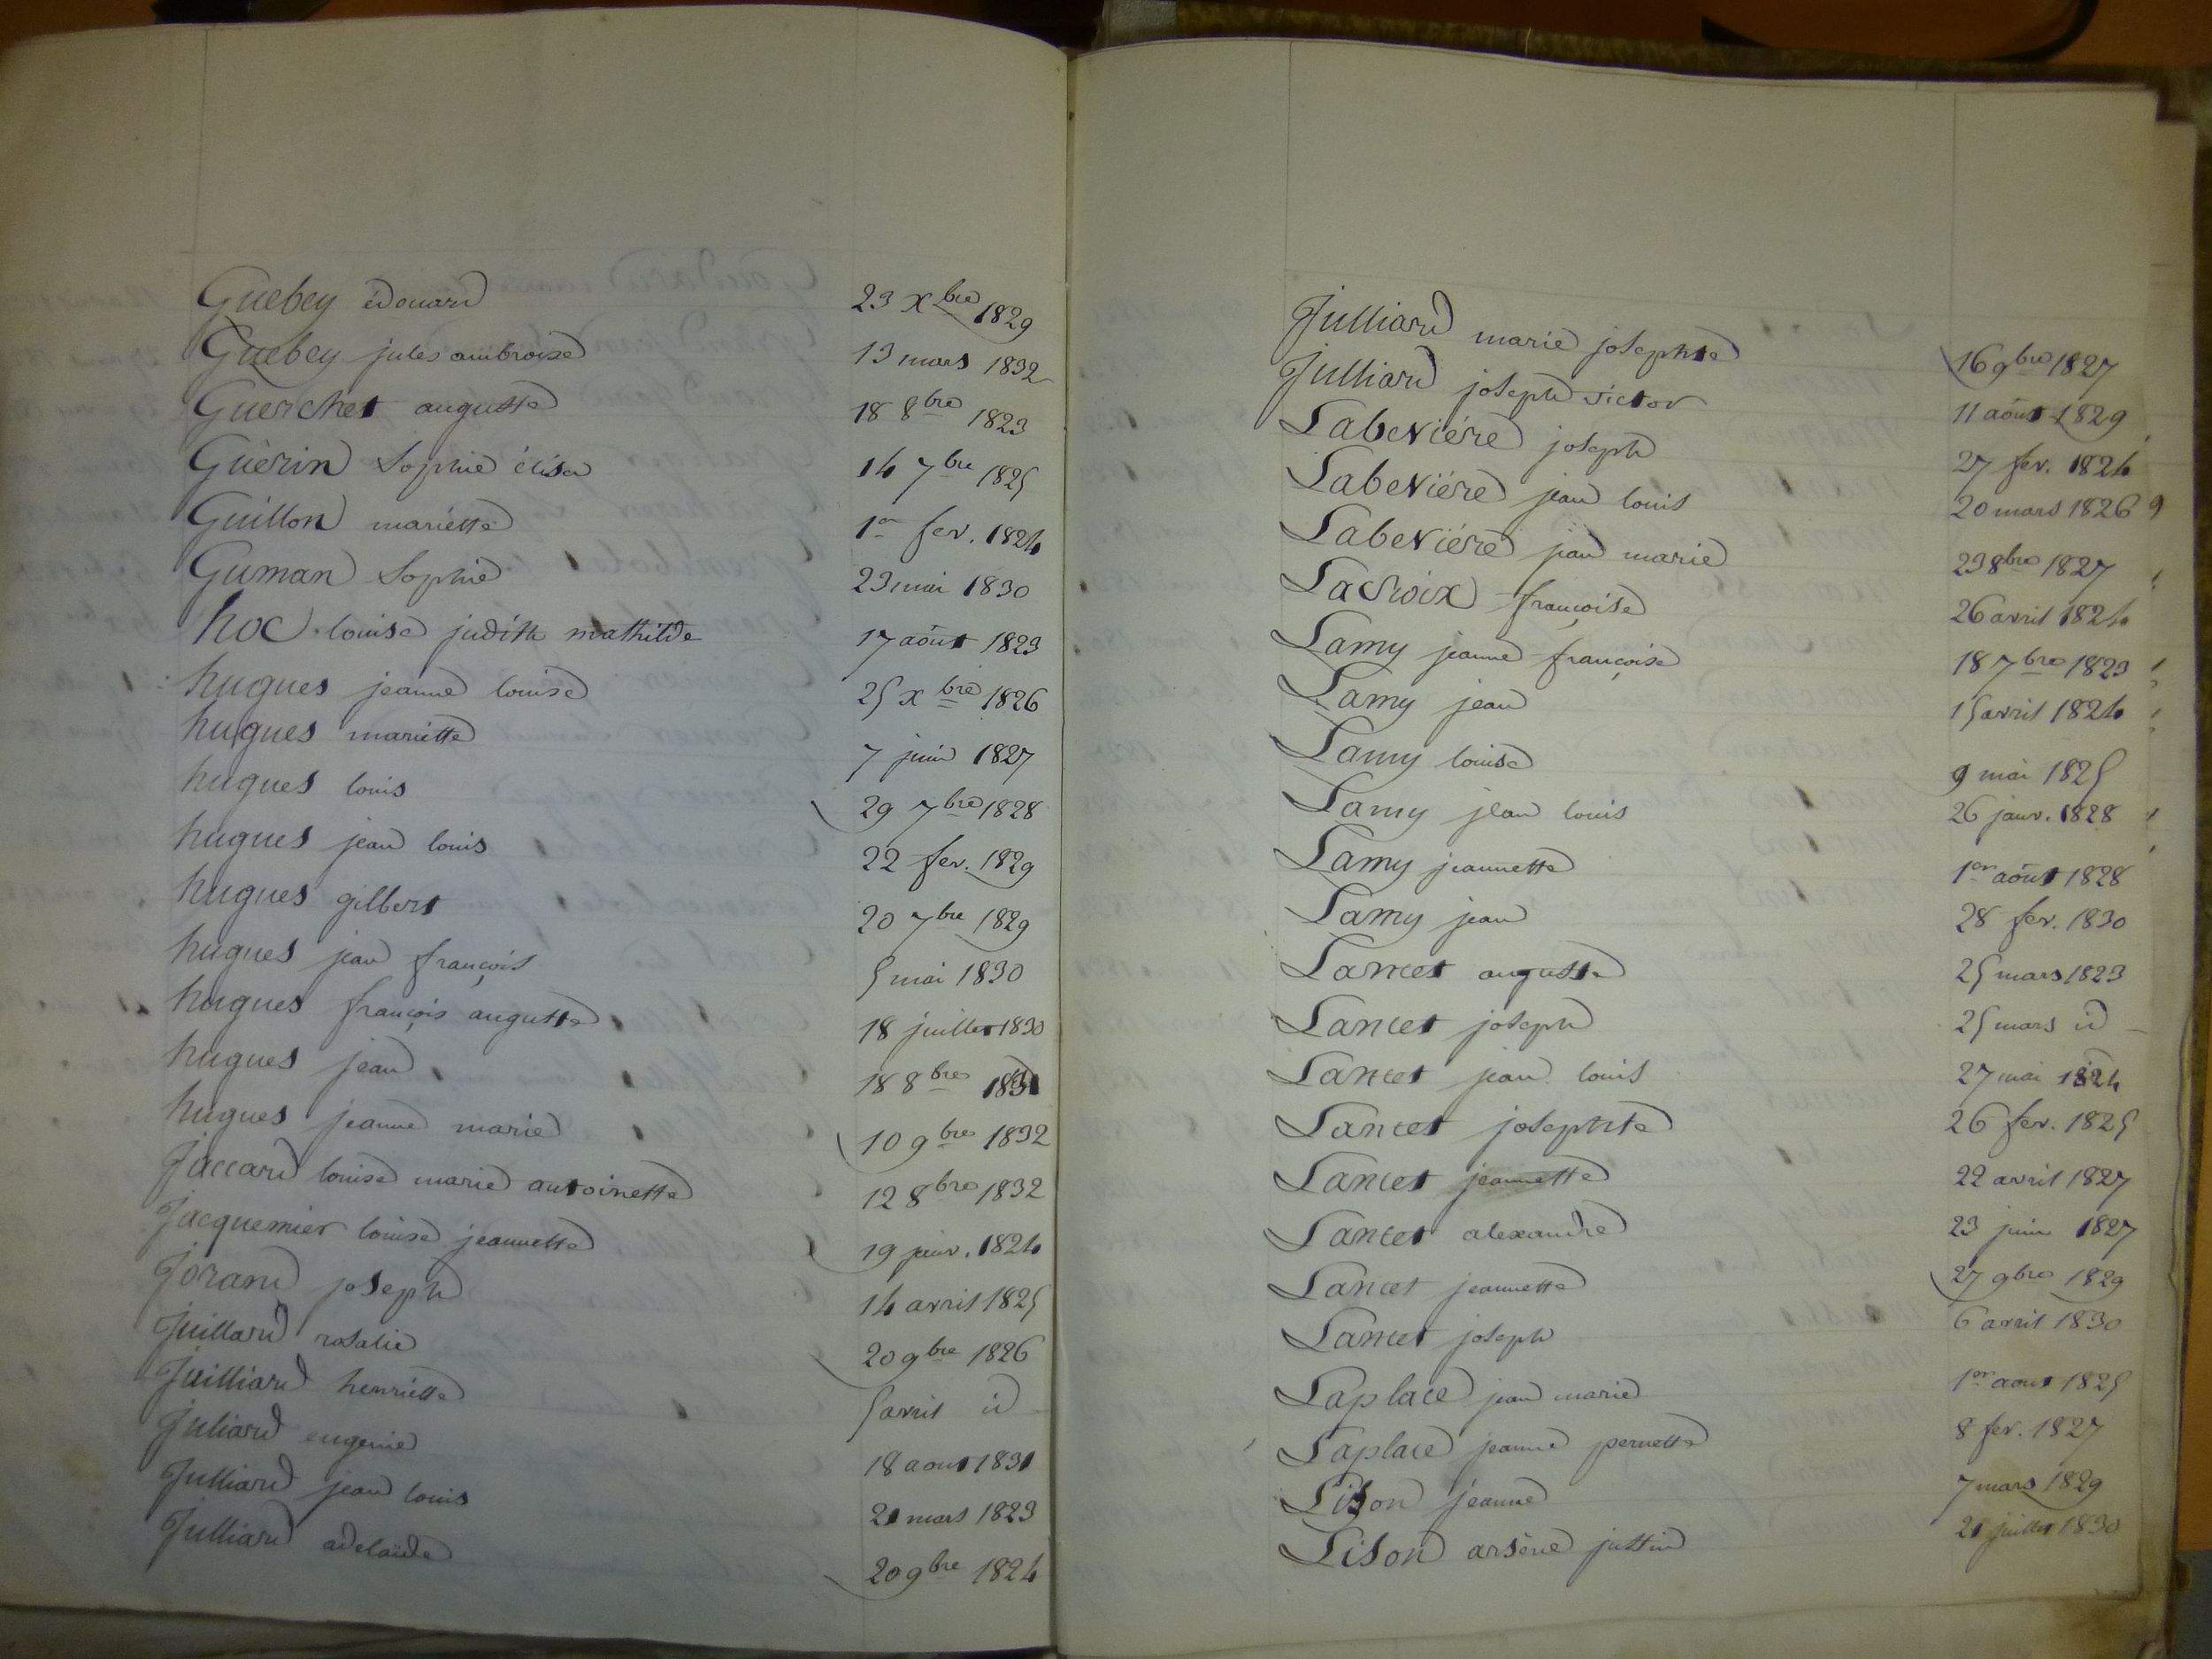 Guebey édouard 23 Xbre 1829
Guebey jules ambroise 13 mars 1832
Guerchet auguste 18 8bre 1823
Guèrin Sophie élisa 14 7bre 1825
Guillon mariette 1er fev. 1824
Guman Sophie 23 mai 1830
hoc louise judith mathilde 17 août 1823
hugues jeanne louise 25 Xbre 1826
hugues mariette 7 juin 1827
hugues louis 29 7bre 1828
hugues jean louis 22 fev. 1829
hugues gilbert 20 7bre 1829
hugues jean françois 5 mai 1830
hugues françois auguste 18 juillet 1830
hugues jean 18 8bre 1831
hugues jeanne marie 10 9bre 1832
Jaccard louise marie antoinette 12 8bre 1832
Jacquemier louise jeannette 19 janv. 1824
Jorand joseph 14 avril 1825
Juillard rosalie 20 9bre 1826
Juilliard henriette 5 avril id
Juliard eugenie 18 aout 1831
Julliard jean louis 21 mars 1823
Julliard adelaïde 20 9bre 1824
Julliard marie josephte 16 9bre 1827
Julliard joseph victor 11 août 1829
Labeviére joseph 27 fev. 1824
Labeviére jean louis 20 mars 1826 9
Labeviére jean marie 23 8bre 1827
Lacroix françoise 26 avril 1824
Lamy jeanne françoise 18 7bre 1823
Lamy jean 15 avril 1824
Lamy louise 9 mai 1825
Lamy jean louis 26 janv. 1828
Lamy jeannette 1er août 1828
Lamy jean 28 fev. 1830
Lancet auguste 25 mars 1823
Lancet joseph 25 mars id
Lancet jean louis 27 mai 1824
Lancet josephte 26 fev. 1825
Lancet jeannette 22 avril 1827
Lancet alexandre 23 juin 1827
Lancet jeannette 27 9bre 1829
Lancet joseph 6 avril 1830
Laplace jean marie 1er aout 1825
Laplace jeanne pernette 8 fev. 1827
Lison jeanne 7 mars 1829
Lison arsène justin 21 juillet 1830